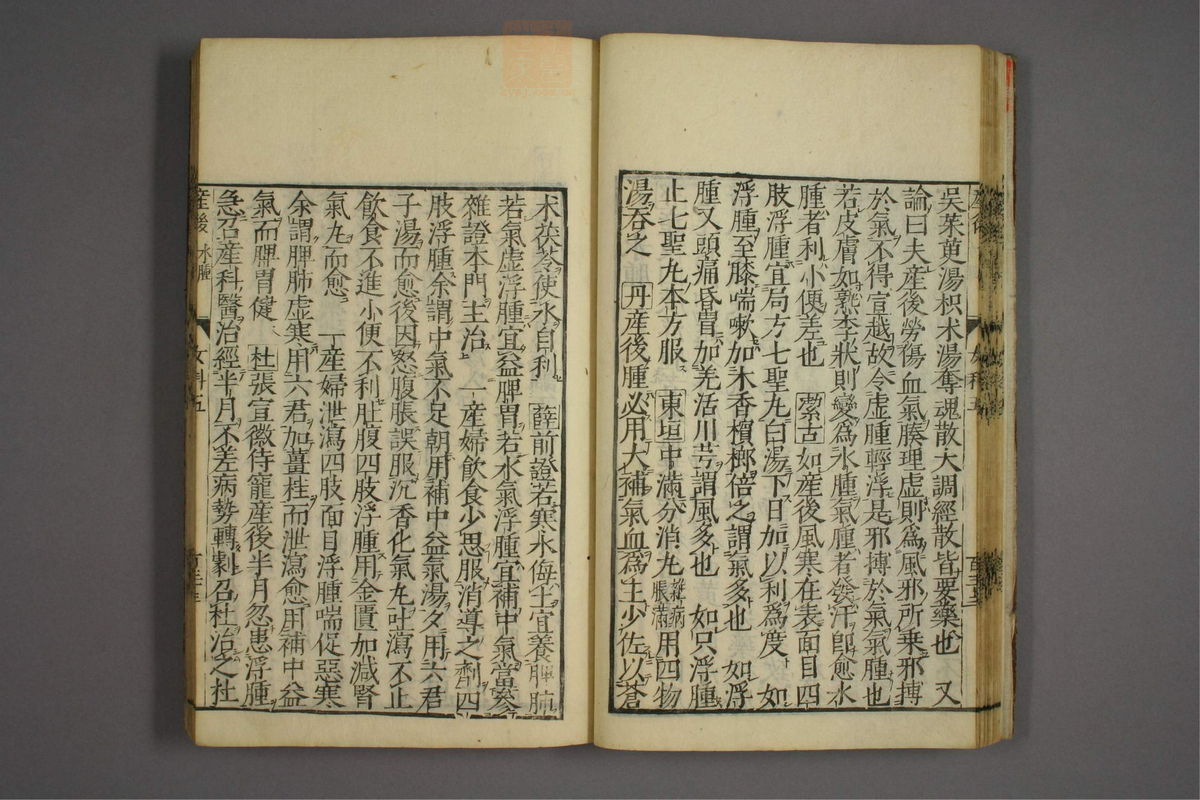 吳茱萸湯枳术湯奪魂散大調經散皆要藥也　又
論曰夫産後勞傷血氣腠理虛則爲風邪所乗邪搏
於氣不得宣越故令虛腫輕浮是邪搏於氣氣腫也
若皮膚如熟李狀則變爲水腫氣腫者發汗即愈水
腫者利小便差也　潔古如産後風寒在表面目四
肢浮腫宜局方七聖丸白湯下日加以利爲度　如
浮腫至膝喘嗽加木香檳榔倍之謂氣多也　如浮
腫又頭痛昏冒加羌活川芎謂風多也　如只浮腫
止七聖丸本方服　東垣中滿分消丸雜病脹滿用四物
湯吞之　丹産後腫必用大補氣血爲主少佐以蒼
术茯苓使水自利　薛前證若寒水侮土宜養脾肺
若氣虛浮腫宜益脾胃若水氣浮腫宜補中氣當參
雜證本門主治　一産婦飲食少思服消導之劑四
肢浮腫余謂中氣不足朝用補中益氣湯夕用六君
子湯而愈後因怒腹脹誤服沉香化氣丸吐瀉不止
飲食不進小便不利肚腹四肢浮腫用金匱加減腎
氣丸而愈　一産婦泄瀉四肢面目浮腫喘促惡寒
余謂脾肺虛寒用六君加薑桂而泄瀉愈用補中益
氣而脾胃健　杜張宣徽侍寵産後半月忽患浮腫
急召産科醫治經半月不差病勢轉劇召杜治之杜
産後　水腫
女科五